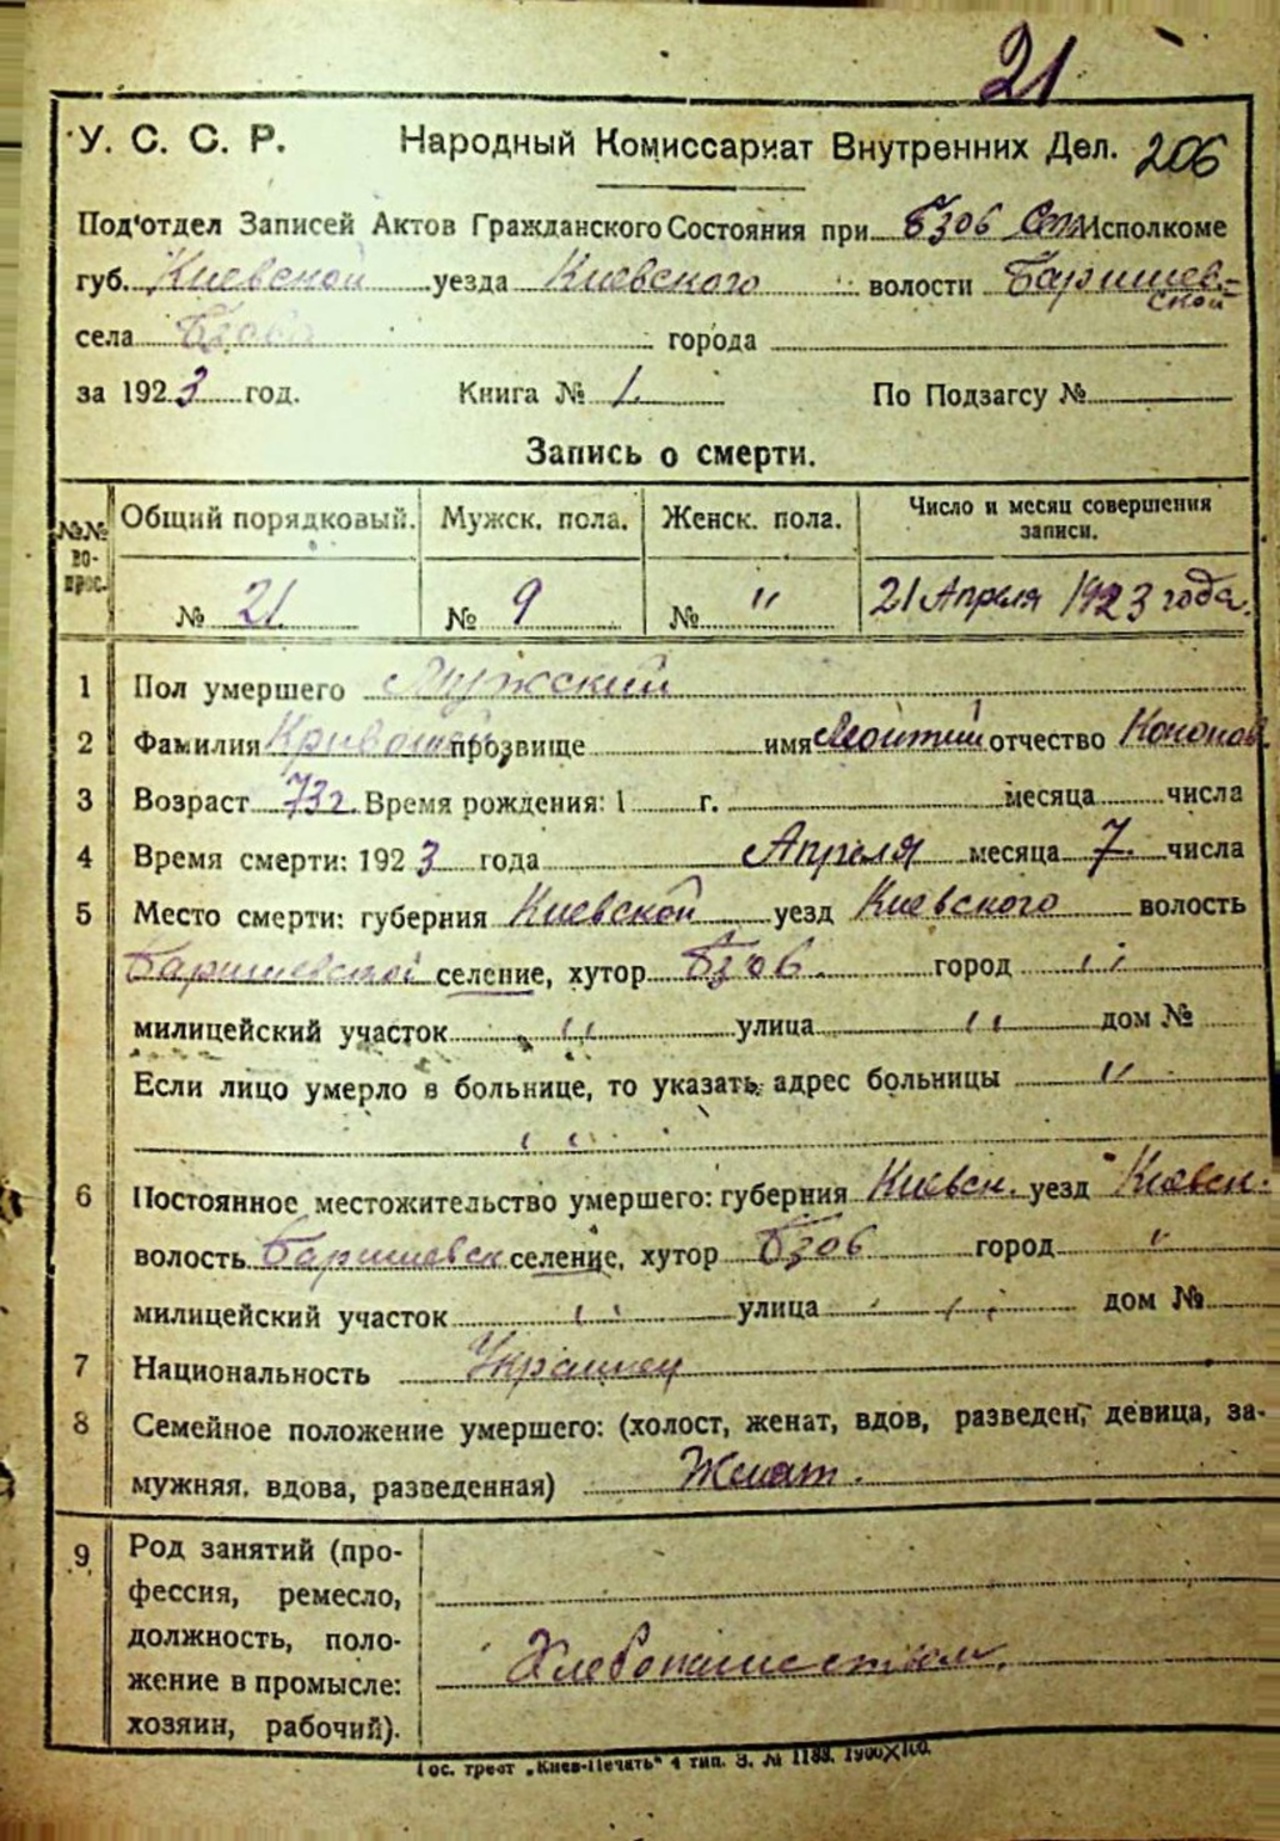 21
У. С. С. Р. Народный Комиссариат Внутренних Дел. 206
Под'отдел Записей Актов Гражданского Состояния при Бзов Исполкоме
губ. Киевской уезда Киевского волости Баришев-
ской
села Бзова города
за 1923 год. Книга № 1. По Подзагсу №
Запись о смерти.
№№ во-прос. Общий порядковый. Мужск. пола. Женск. пола. Число и месяц совершения записи.
№ 21. № 9 № " 21 Апреля 1923 года.
1 Пол умершего Мужский
2 Фамилия Кривошея прозвище имя отчество Кононов.
3 Возраст 73 г. Время рождения: 1 г. месяца числа
4 Время смерти: 1923 года Апреля месяца 7. числа
5 Место смерти: губерния Киевской уезд Киевского волость
Баришевской селение, хутор Бзов. город "
милицейский участок " улица " дом №
Если лицо умерло в больнице, то указать адрес больницы "
"
6 Постоянное местожительство умершего: губерния Киевск. уезд Киевск.
волость Баришевск селение, хутор Бзов город "
милицейский участок " улица " дом №
7 Национальность Украинец
8 Семейное положение умершего: (холост, женат, вдов, разведен, девица, за-
мужняя, вдова, разведенная) Женат.
9 Род занятий (про-
фессия, ремесло,
должность, поло-
жение в промысле:
хозяин, рабочий).
Хлебопашеством.
Гос. трест „Киев-Печать" 4 тип. З. № 1188. 1900×100.